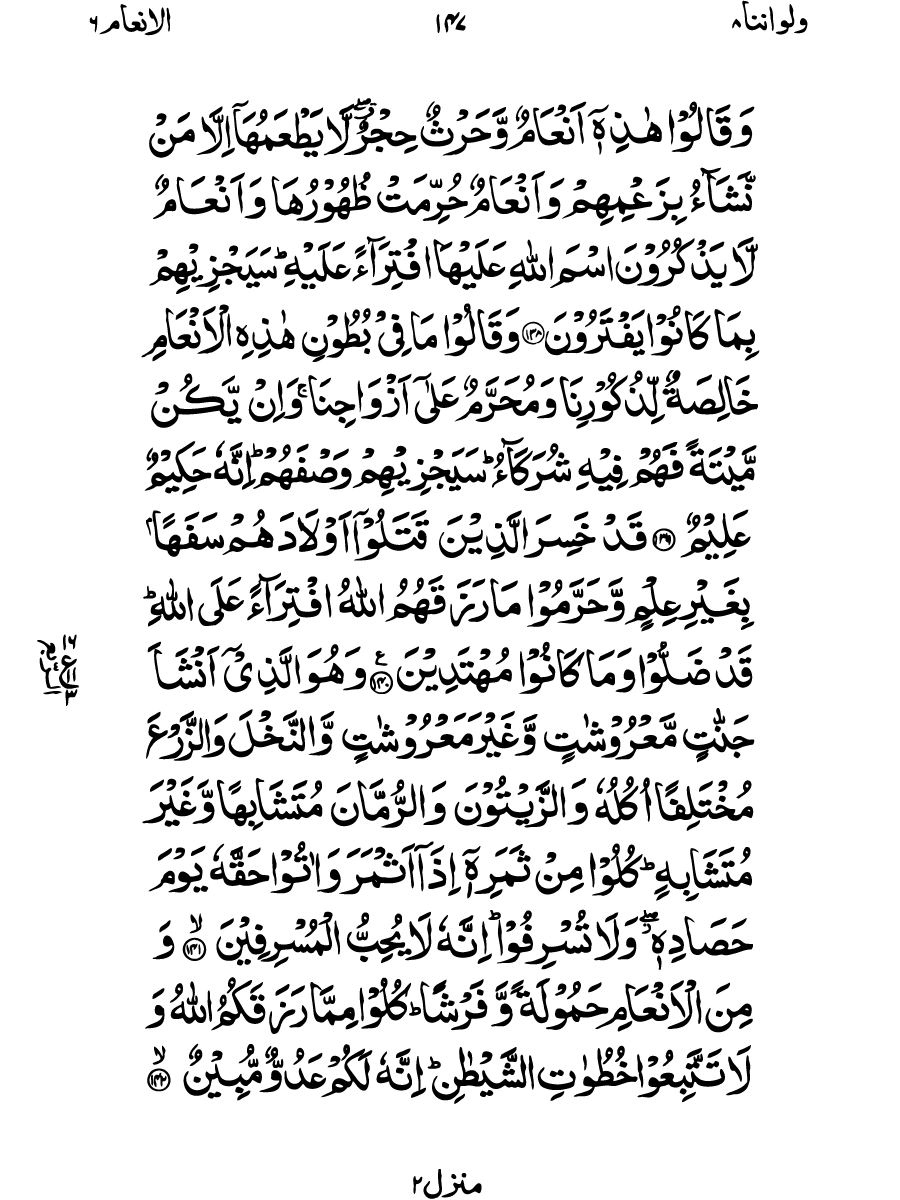 ولو اننا ۸
۱۴۷
الانعام ۶
وَقَالُوْا هٰذِهٖۤ اَنْعَامٌ وَّحَرْثٌ حِجْرٌ ۖۗ لَّا يَطْعَمُهَاۤ اِلَّا مَنْ
نَّشَآءُ بِزَعْمِهِمْ وَاَنْعَامٌ حُرِّمَتْ ظُهُوْرُهَا وَاَنْعَامٌ
لَّا يَذْكُرُوْنَ اسْمَ اللّٰهِ عَلَيْهَا افْتِرَآءً عَلَيْهِ ؕ سَيَجْزِيْهِمْ
بِمَا كَانُوْا يَفْتَرُوْنَ ﴿۱۳۸﴾ وَقَالُوْا مَا فِىْ بُطُوْنِ هٰذِهِ الْاَنْعَامِ
خَالِصَةٌ لِّذُكُوْرِنَا وَمُحَرَّمٌ عَلٰٓى اَزْوَاجِنَا ۚ وَاِنْ يَّكُنْ
مَّيْتَةً فَهُمْ فِيْهِ شُرَكَآءُ ؕ سَيَجْزِيْهِمْ وَصْفَهُمْ ؕ اِنَّهٗ حَكِيْمٌ
عَلِيْمٌ ﴿۱۳۹﴾ قَدْ خَسِرَ الَّذِيْنَ قَتَلُوْۤا اَوْلَادَهُمْ سَفَهًاۢ
بِغَيْرِ عِلْمٍ وَّحَرَّمُوْا مَا رَزَقَهُمُ اللّٰهُ افْتِرَآءً عَلَى اللّٰهِ ؕ
قَدْ ضَلُّوْا وَمَا كَانُوْا مُهْتَدِيْنَ ﴿۱۴۰﴾ ع وَهُوَ الَّذِىْۤ اَنْشَاَ
جَنّٰتٍ مَّعْرُوْشٰتٍ وَّغَيْرَ مَعْرُوْشٰتٍ وَّالنَّخْلَ وَالزَّرْعَ
مُخْتَلِفًا اُكُلُهٗ وَالزَّيْتُوْنَ وَالرُّمَّانَ مُتَشَابِهًا وَّغَيْرَ
مُتَشَابِهٍ ؕ كُلُوْا مِنْ ثَمَرِهٖۤ اِذَاۤ اَثْمَرَ وَاٰتُوْا حَقَّهٗ يَوْمَ
حَصَادِهٖ ۖؗ وَلَا تُسْرِفُوْا ؕ اِنَّهٗ لَا يُحِبُّ الْمُسْرِفِيْنَ ۙ﴿۱۴۱﴾ وَ
مِنَ الْاَنْعَامِ حَمُوْلَةً وَّفَرْشًا ؕ كُلُوْا مِمَّا رَزَقَكُمُ اللّٰهُ وَ
لَا تَتَّبِعُوْا خُطُوٰتِ الشَّيْطٰنِ ؕ اِنَّهٗ لَكُمْ عَدُوٌّ مُّبِيْنٌ ۙ﴿۱۴۲﴾
منزل ۲